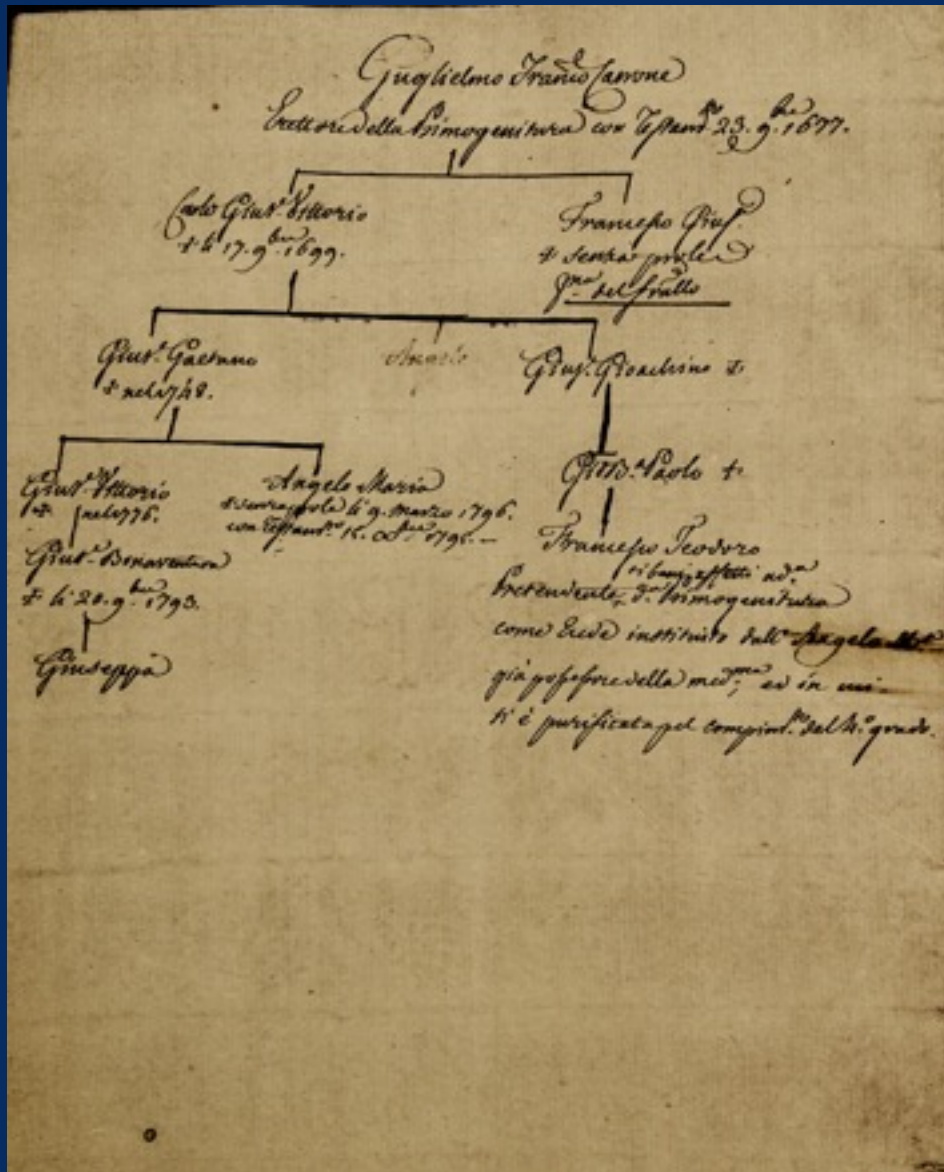 Guglielmo Franco Carrone
Erettore della Primogenitura con Testamto 23. 9bre 1677.
Carlo Giusē Vittorio
† li 17. 9bre 1699.
Francesco Giuse
† senza prole
pma del frallo
Giuse Gaetano
† nel 1748.
Angelo
Giuse Gioachino †
Giuse Vittorio
† nel 1776.
Angelo Maria
† senza prole li 9. Marzo 1796.
con Testamto 1795.
Paolo †
Giuse Bonaventura
† li 20. 9bre 1793.
Francesco Teodoro
Pretendente da Primogenitura
come Erede instituito dall' Angelo Ma
già possessore della medma, ed in cui
si è purificata pel compimto del 4o grado.
Giuseppa